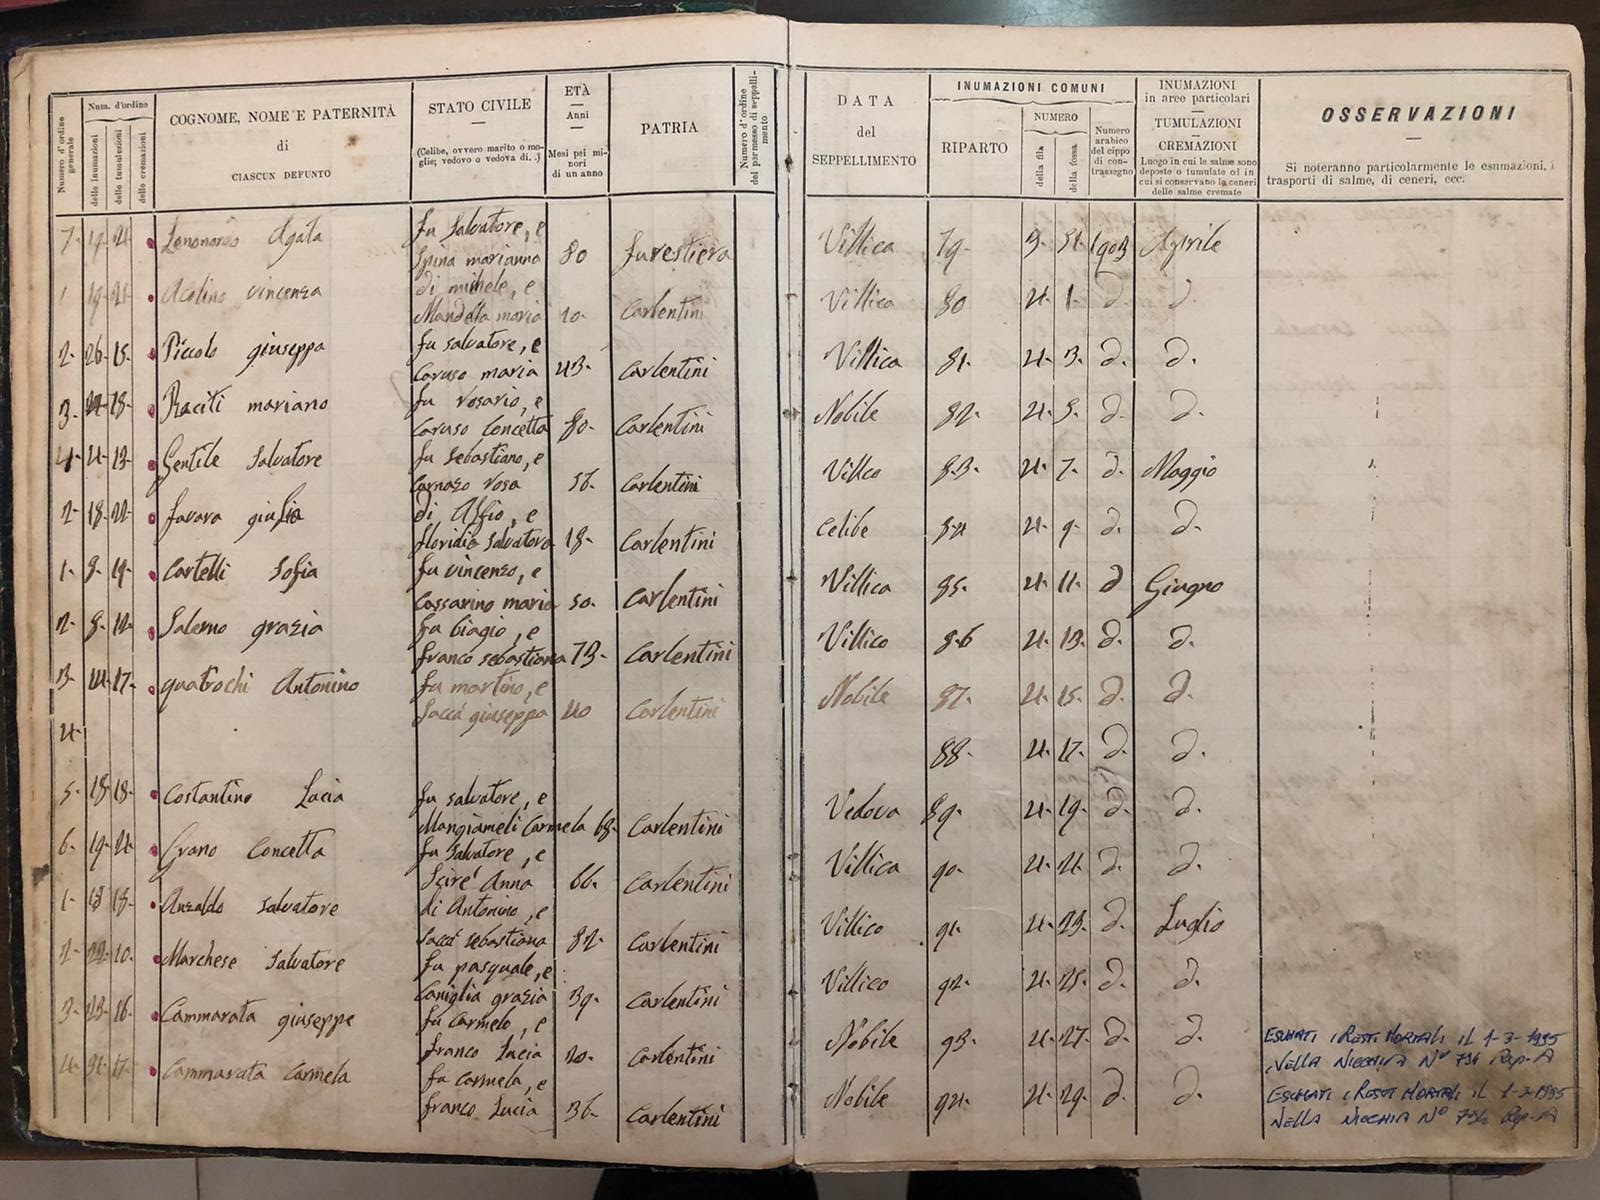 Numero d'ordine generale
Num. d'ordine
delle inumazioni
delle tumulazioni
delle cremazioni
COGNOME, NOME E PATERNITÀ
di
CIASCUN DEFUNTO
STATO CIVILE
(Celibe, ovvero marito o moglie; vedovo o vedova di. .)
ETÀ
Anni
Mesi pei minori di un anno
PATRIA
Numero d'ordine del permesso di seppellimento
DATA
del
SEPPELLIMENTO
INUMAZIONI COMUNI
RIPARTO
NUMERO
della fila
della fossa
Numero arabico del cippo di contrassegno
INUMAZIONI
in aree particolari
TUMULAZIONI
CREMAZIONI
Luogo in cui le salme sono
deposte o tumulate od in
cui si conservano le ceneri
delle salme cremate
OSSERVAZIONI
Si noteranno particolarmente le esumazioni, i
trasporti di salme, di ceneri, ecc.
7- 19- 21- Agata fu Salvatore, e
Spina marianna 80 furestiera Villica 79- 3- 31- 1903 Aprile
1 19- 21- vincenza di michele, e
maria 20- Carlentini Villica 80 4- 1- d. d.
2- 26- 15- Piccolo giuseppa fu salvatore, e
Caruso maria 43- Carlentini Villica 81- 4- 3- d. d.
3- 18- Raciti mariano fu rosario, e
Caruso Concetta 80- Carlentini Nobile 82- 4- 5- d. d.
4- 4- 13- Gentile Salvatore fu Sebastiano, e
rosa 56- Carlentini Villco 83- 4- 7- d. Maggio
2- 18- 22- Favara giulia di Alfio, e
floridia Salvatora 18- Carlentini Celibe 84 4- 9- d. d.
1- 8- 19- Cartelli Sofia fu vincenzo, e
Cassarino maria 50- Carlentini Villica 85- 4- 11- d Giugno
2- 8- 12- Salerno grazia fu biagio, e
franco sebastiana 73- Carlentini Villico 86 4- 13- d. d.
3- 14- 17- quatrochi Antonino fu martino, e
Saccà giuseppa 40 Carlentini Nobile 87- 4- 15- d. d.
4- 88- 4- 17- d. d.
5- 18- 18- Costantino Lucia fu salvatore, e
Mangiameli Carmela 68- Carlentini Vedova 89- 4- 19- d. d.
6- 19- 21- Grano Concetta fu Salvatore, e
Scirè Anna 66- Carlentini Villica 90- 4- 21- d. d.
1- 18 18- Anzaldo Salvatore di Antonino, e
Saccà sebastiana 82- Carlentini Villico 91- 4- 23- d. Luglio
2- 22- 10- Marchese Salvatore fu pasquale, e
Caniglia grazia 39- Carlentini Villico 92- 4- 25- d. d.
3- 23- 16- Cammarata giuseppe fu Carmelo, e
franco Lucia 20- Carlentini Nobile 93- 4- 27- d. d. ESUMATI I RESTI MORTALI IL 1-3-1995
NELLA NICCHIA N° 734 Rep. A
4- 31- 17- Cammarata Carmela fu Carmela, e
franco Lucia 36- Carlentini Nobile 94- 4- 29- d. d. ESUMATI I RESTI MORTALI IL 1-3-1995
NELLA NICCHIA N° 734 Rep. A